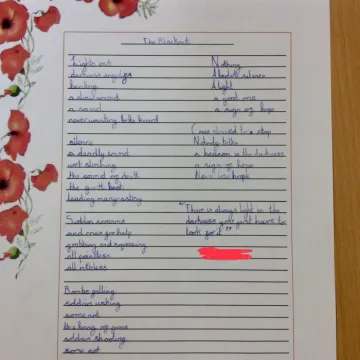 The Blackout
Lights out
darkness engulfs
beating
a slow sound
a sound
never wanting to be heard
silence
a deadly sound
the sound of death
the quiet beat
leading many astray
Sudden screams
and cries for help
grabbing and squeezing
all pointless
all ruthless
Bombs falling
soldiers
some not
the bang of guns
soldiers shooting
some not
Nothing
Absolute silence
A light
a good one
a sign of hope
slowed to a stop
Nobody talks
a beacon in the darkness
a sign of hope
hope
"There is always light in the
darkness you just have to
look for it"